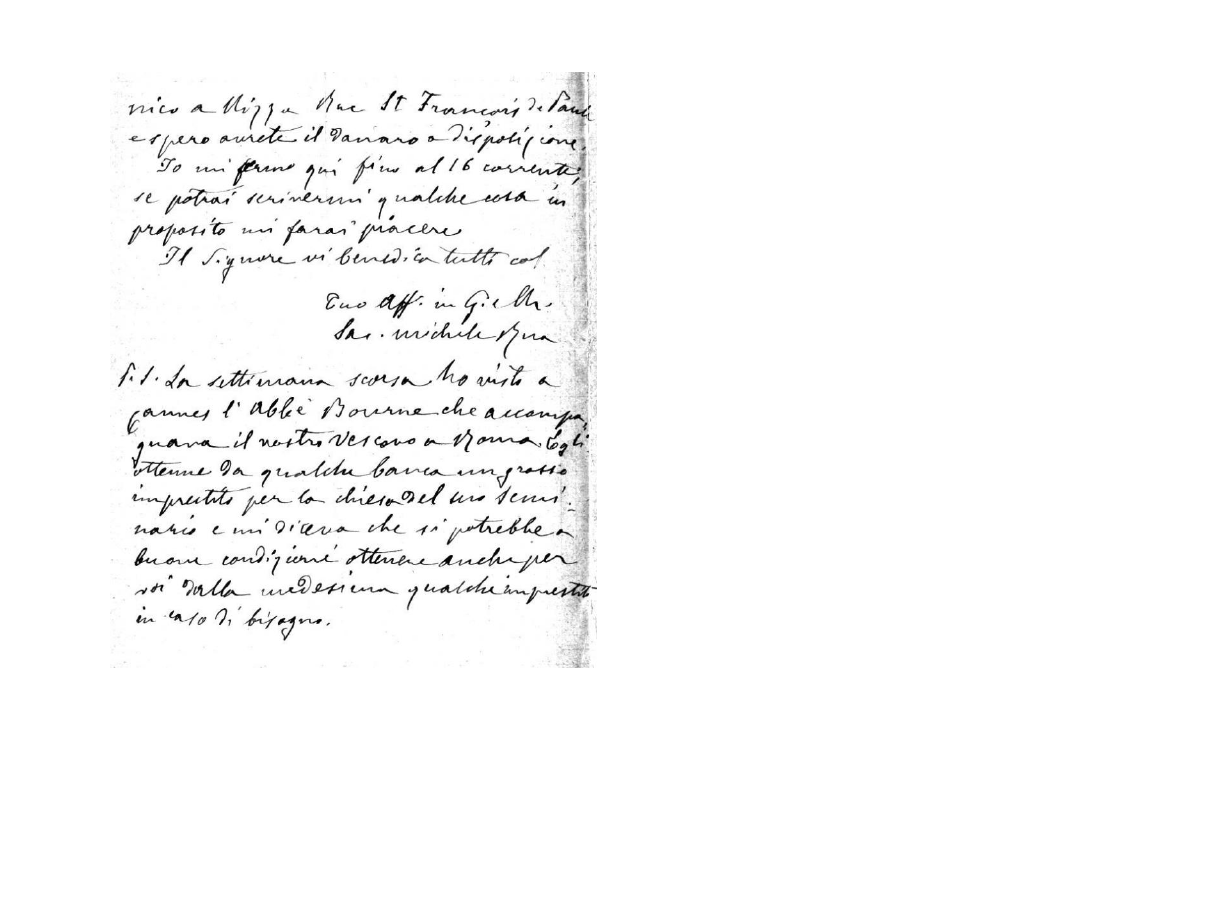 nico a Nizza Rue St François de Paul
e spero avrete il danaro a disposizione.
Io mi fermo qui fino al 16 corrente,
se potrai scrivermi qualche cosa in
proposito mi farai piacere
Il Signore vi benedica tutti col
Tuo aff. in G. e M.
Sac. Michele Rua
P.S. La settimana scorsa ho visto a
Cannes l'Abbé Bourne che accompa
gnava il vostro Vescovo a Roma. Egli
ottenne da qualche banca un grosso
imprestito per la chiesa del suo semi-
nario e mi diceva che si potrebbe a
buone condizioni ottenere anche per
voi dalla medesima qualche imprestito
in caso di bisogno.